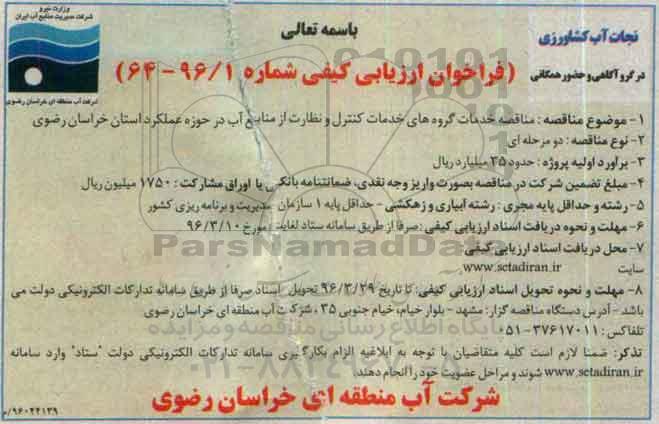 وزارت نیرو
شرکت مدیریت منابع آب ایران
شرکت آب منطقه ای خراسان رضوی
باسمه تعالی
نجات آب کشاورزی
در گرو آگاهی و حضور همگانی
(فراخوان ارزیابی کیفی شماره ۹۶/۱-۶۴)
۱- موضوع مناقصه : مناقصه خدمات گروه های خدمات کنترل و نظارت از منابع آب در حوزه عملکرد استان خراسان رضوی
۲- نوع مناقصه : دو مرحله ای
۳- براورد اولیه پروژه : حدود ۳۵ میلیارد ریال
۴- مبلغ تضمین شرکت در مناقصه بصورت واریز وجه نقدی، ضمانتنامه بانکی یا اوراق مشارکت : ۱۷۵۰ میلیون ریال
۵- رشته و حداقل پایه مجری : رشته آبیاری و زهکشی - حداقل پایه ۱ سازمان مدیریت و برنامه ریزی کشور
۶- مهلت و نحوه دریافت اسناد ارزیابی کیفی : صرفا از طریق سامانه ستاد لغایت مورخ ۹۶/۳/۱۰
۷- محل دریافت اسناد ارزیابی کیفی :
سایت www.setadiran.ir
۸- مهلت و نحوه تحویل اسناد ارزیابی کیفی: تا تاریخ ۹۶/۳/۲۹ تحویل اسناد صرفا از طریق سامانه تدارکات الکترونیکی دولت می
باشد - آدرس دستگاه مناقصه گزار: مشهد - بلوار خیام، خیام جنوبی ۳۵ ، شرکت آب منطقه ای خراسان رضوی
تلفاکس: ۳۷۶۱۷۰۱۱-۰۵۱
تذکر: ضمنا لازم است کلیه متقاضیان با توجه به ابلاغیه الزام بکارگیری سامانه تدارکات الکترونیکی دولت "ستاد" وارد سامانه
www.setadiran.ir شوند و مراحل عضویت خود را انجام دهند.
شرکت آب منطقه ای خراسان رضوی
۹۶۰۲۲۱۳۹/م
ParsNamadData
پایگاه اطلاع رسانی مناقصه و مزایده